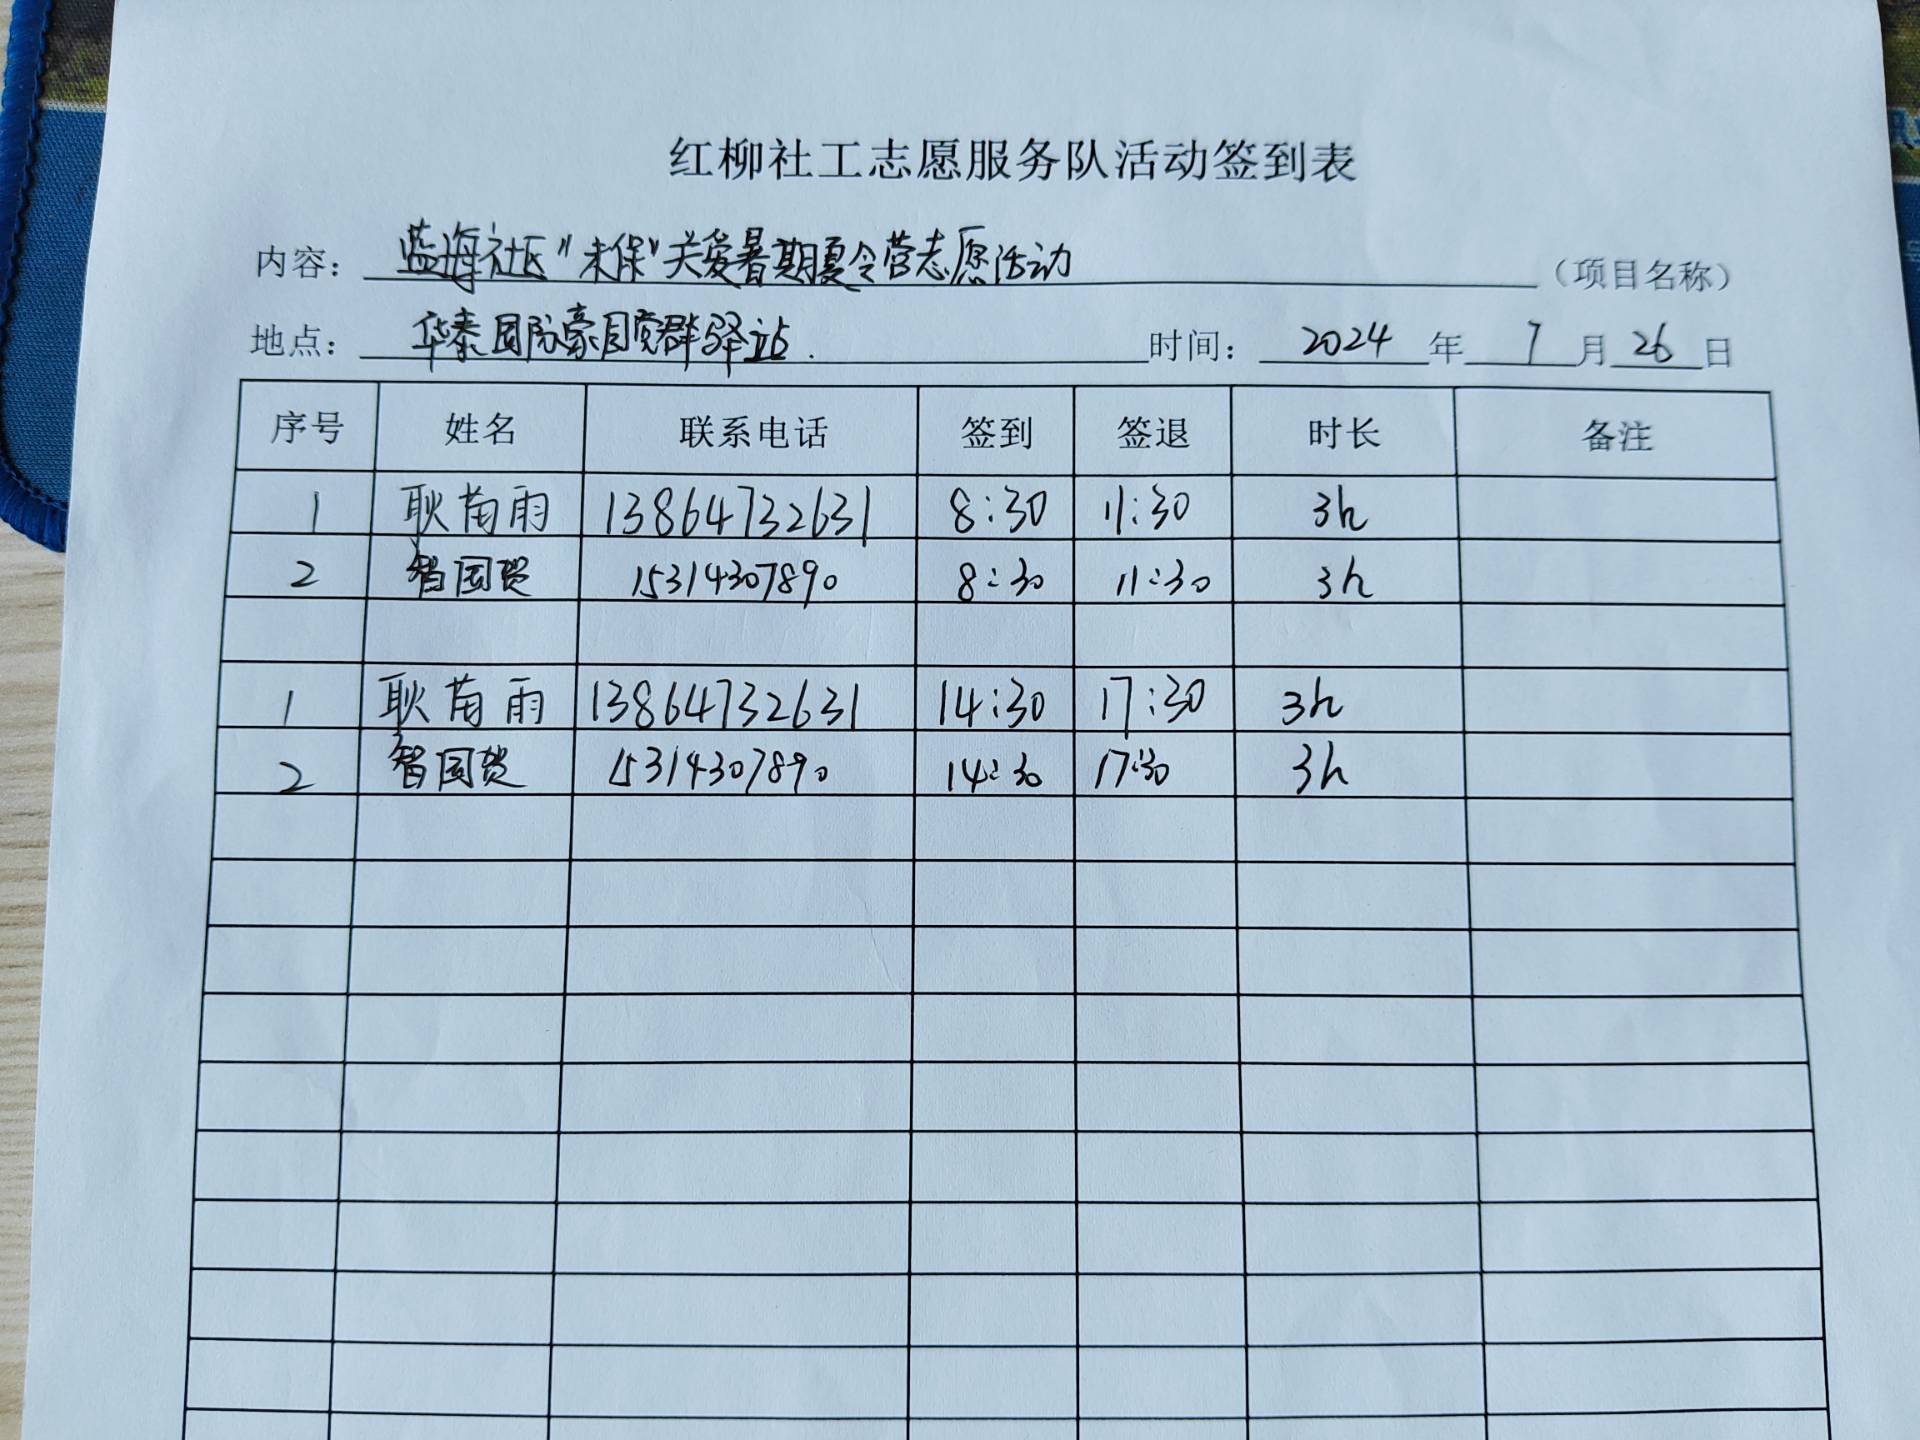 红柳社工志愿服务队活动签到表
内容: 蓝海社区"未保"关爱暑期夏令营志愿活动 (项目名称)
地点: 华泰国际豪园党群驿站. 时间: 2024 年 7 月 26 日
序号 姓名 联系电话 签到 签退 时长 备注
1 耿苗雨 13864732631 8:30 11:30 3h
2 智国贺 15314307890 8:30 11:30 3h
1 耿苗雨 13864732631 14:30 17:30 3h
2 智国贺 15314307890 14:30 17:30 3h